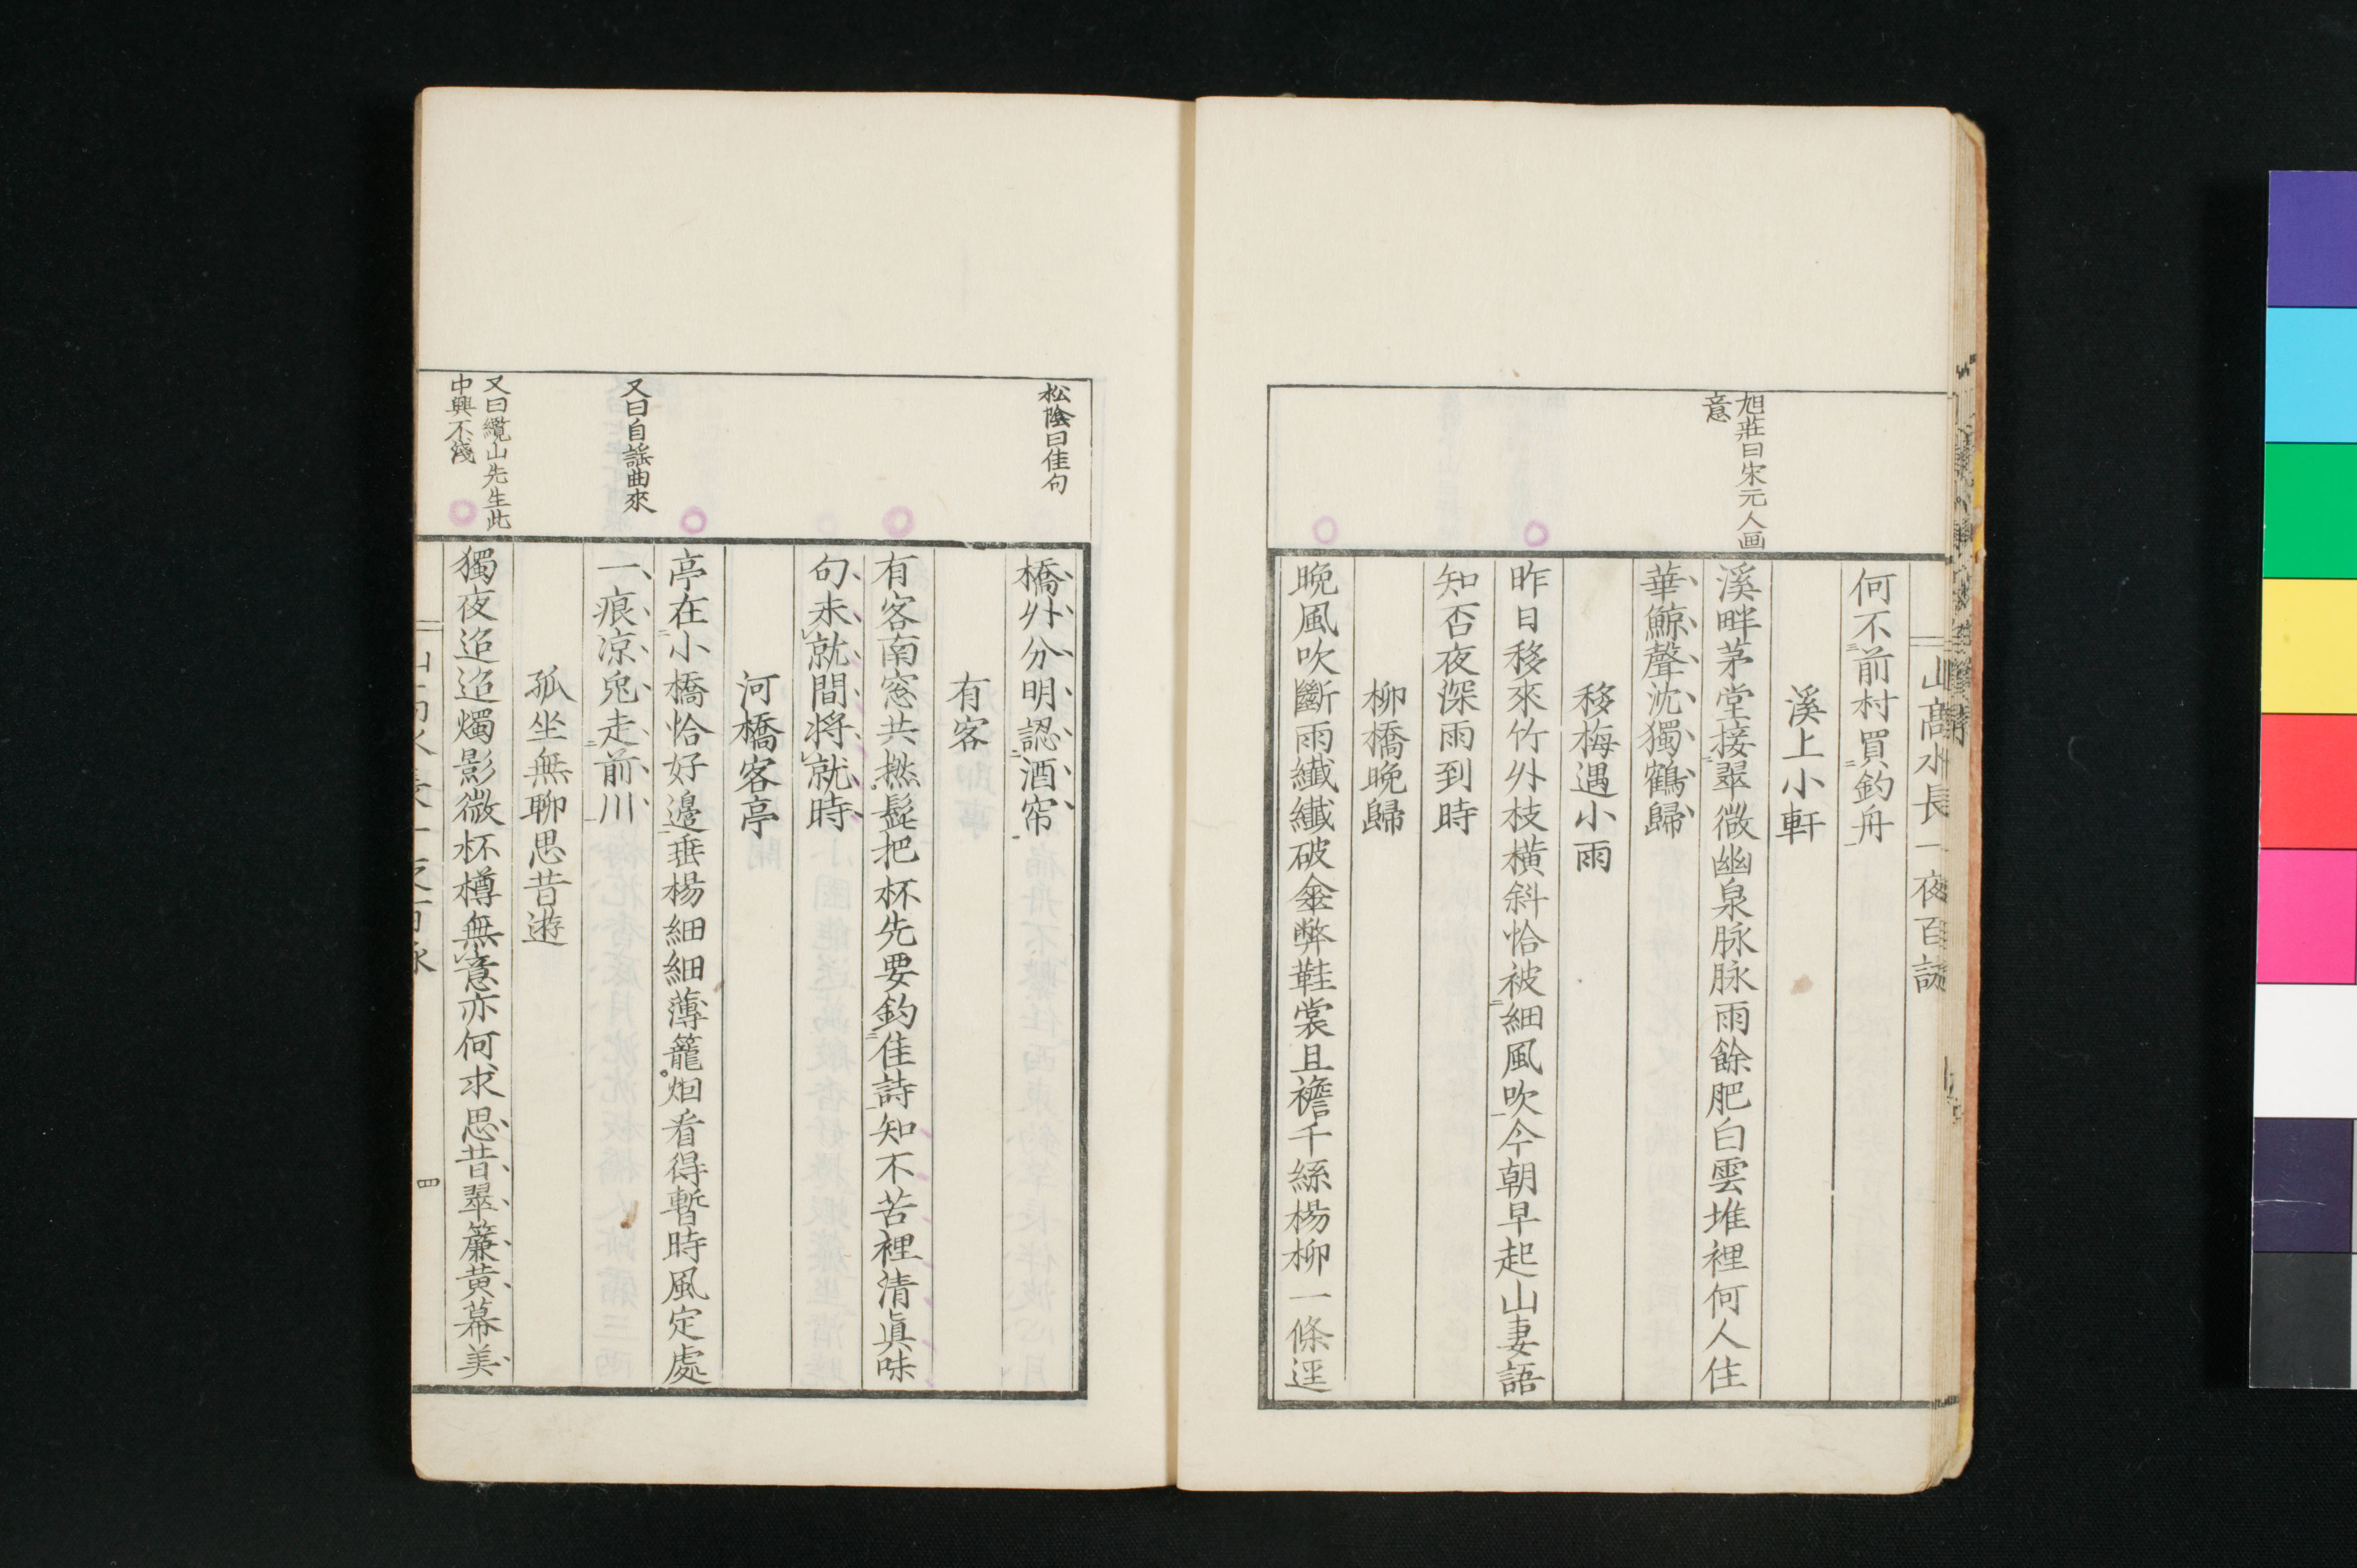 山高水長一夜百詠
何不前村買釣舟
溪上小軒
旭莊曰宋元人画
意
溪畔茅堂接翠微幽泉脉脉雨餘肥白雲堆裡何人住
華鯨聲沈獨鶴歸
移梅遇小雨
昨日移來竹外枝橫斜恰被細風吹今朝早起山妻語
知否夜深雨到時
柳橋晚歸
晚風吹斷雨纖纖破傘弊鞋裳且襜千絲楊柳一條逕
松陰曰佳句
橋外分明認酒帘
有客
有客南窓共撚髭把杯先要釣佳詩知不苦裡清眞味
句未就間將就時
河橋客亭
亭在小橋恰好邊垂楊細細薄籠烟看得暫時風定處
又曰自謡曲來
一痕凉兎走前川
孤坐無聊思昔遊
又曰纜山先生此
中興不淺
獨夜迢迢燭影微杯樽無意亦何求思昔翠簾黄幕美
四